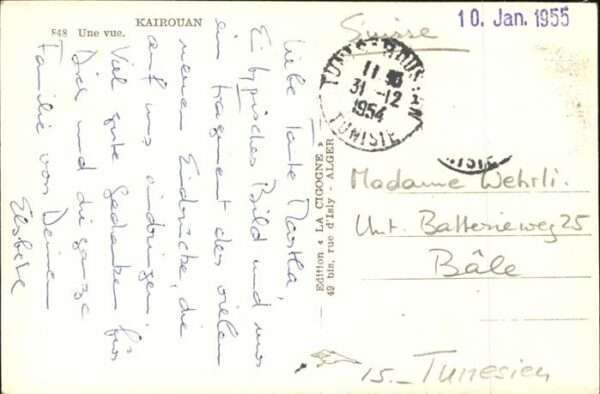 KAIROUAN
848 Une vue.
Liebe Tante Martha,
E typisches Bild und nur
ein fragment der vielen
neuen Eindrücke, die
auf uns eindringen.
Viel gute Gedanken für
Dich und die ganze
Familie von Deiner
Elsbeth
Edition « LA CIGOGNE »
49 bis, rue d'Isly - ALGER
10. Jan. 1955
Suisse
11
31-12
1954
TUNISIE
Madame Wehrli.
Unt. Batterieweg 25
Bâle
15.- Tunesien